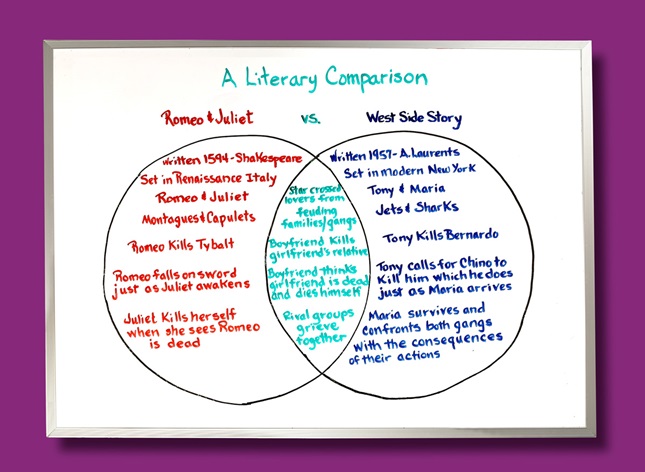 A Literary Comparison
Romeo & Juliet vs. West Side Story
Written 1594-Shakespeare
Set in Renaissance Italy
Romeo & Juliet
Montagues & Capulets
Romeo Kills Tybalt
Romeo falls on sword
just as Juliet awakens
Juliet Kills herself
when she sees Romeo
is dead
Star crossed
lovers from
feuding
families/gangs
Boyfriend Kills
girlfriend's relative
Boyfriend thinks
girlfriend is dead
and dies himself
Rival groups
grieve
together
Written 1957-A.Laurents
Set in modern New York
Tony & Maria
Jets & Sharks
Tony Kills Bernardo
Tony calls for Chino to
Kill him which he does
just as Maria arrives
Maria survives and
confronts both gangs
with the consequences
of their actions